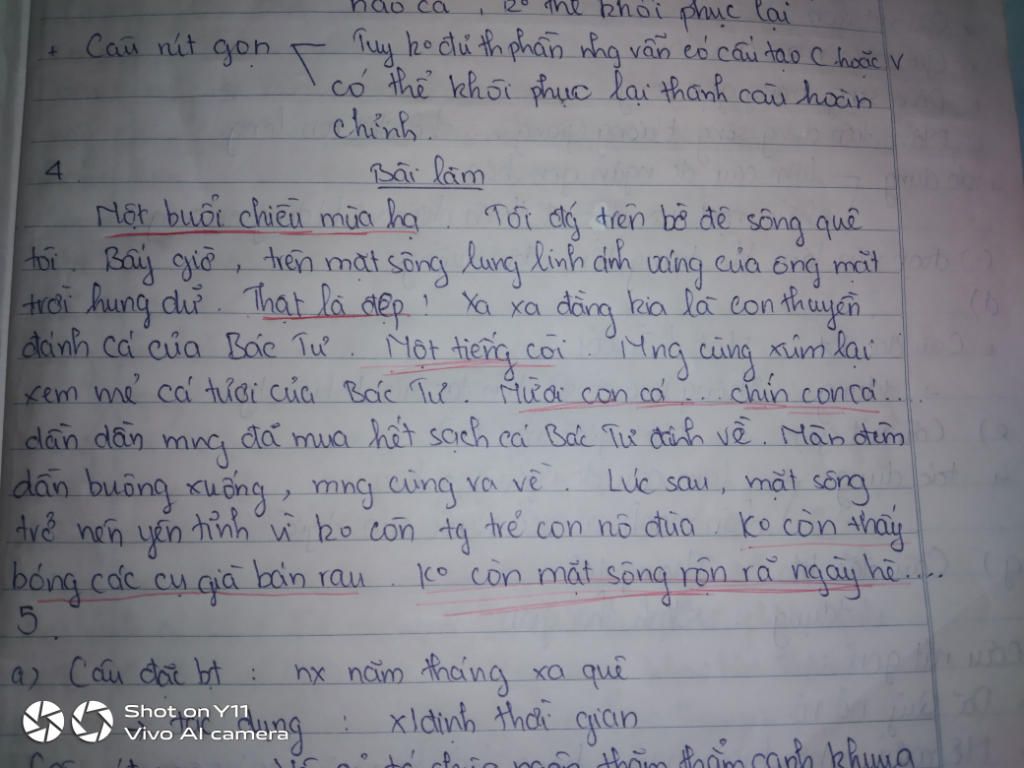 nào cả, ko thể khôi phục lại
+ Câu rút gọn Tuy ko đủ th phần nhg vẫn có cấu tạo C hoặc V
có thể khôi phục lại thành câu hoàn
chỉnh.
4. Bài làm
Một buổi chiều mùa hạ. Tôi đg trên bờ đê sông quê
tôi. Bấy giờ, trên mặt sông lung linh ánh vàng của ông mặt
trời hung dữ. Thật là đẹp! Xa xa đằng kia là con thuyền
đánh cá của Bác Tư. Một tiếng còi. Mng cùng xúm lại
xem mẻ cá tươi của Bác Tư. Mười con cá... chín con cá....
dần dần mng đã mua hết sạch cá Bác Tư đánh về. Màn đêm
dần buông xuống, mng cùng ra về. Lúc sau, mặt sông
trở nên yên tĩnh vì ko còn tg trẻ con nô đùa. Ko còn thấy
bóng các cụ già bán rau. Ko còn mặt sông rộn rã ngày hè....
5.
a) Câu đặc bt: nx năm tháng xa quê
tác dụng: xđịnh thời gian
Shot on Y11
Vivo AI camera
thăm thẳm canh khuya